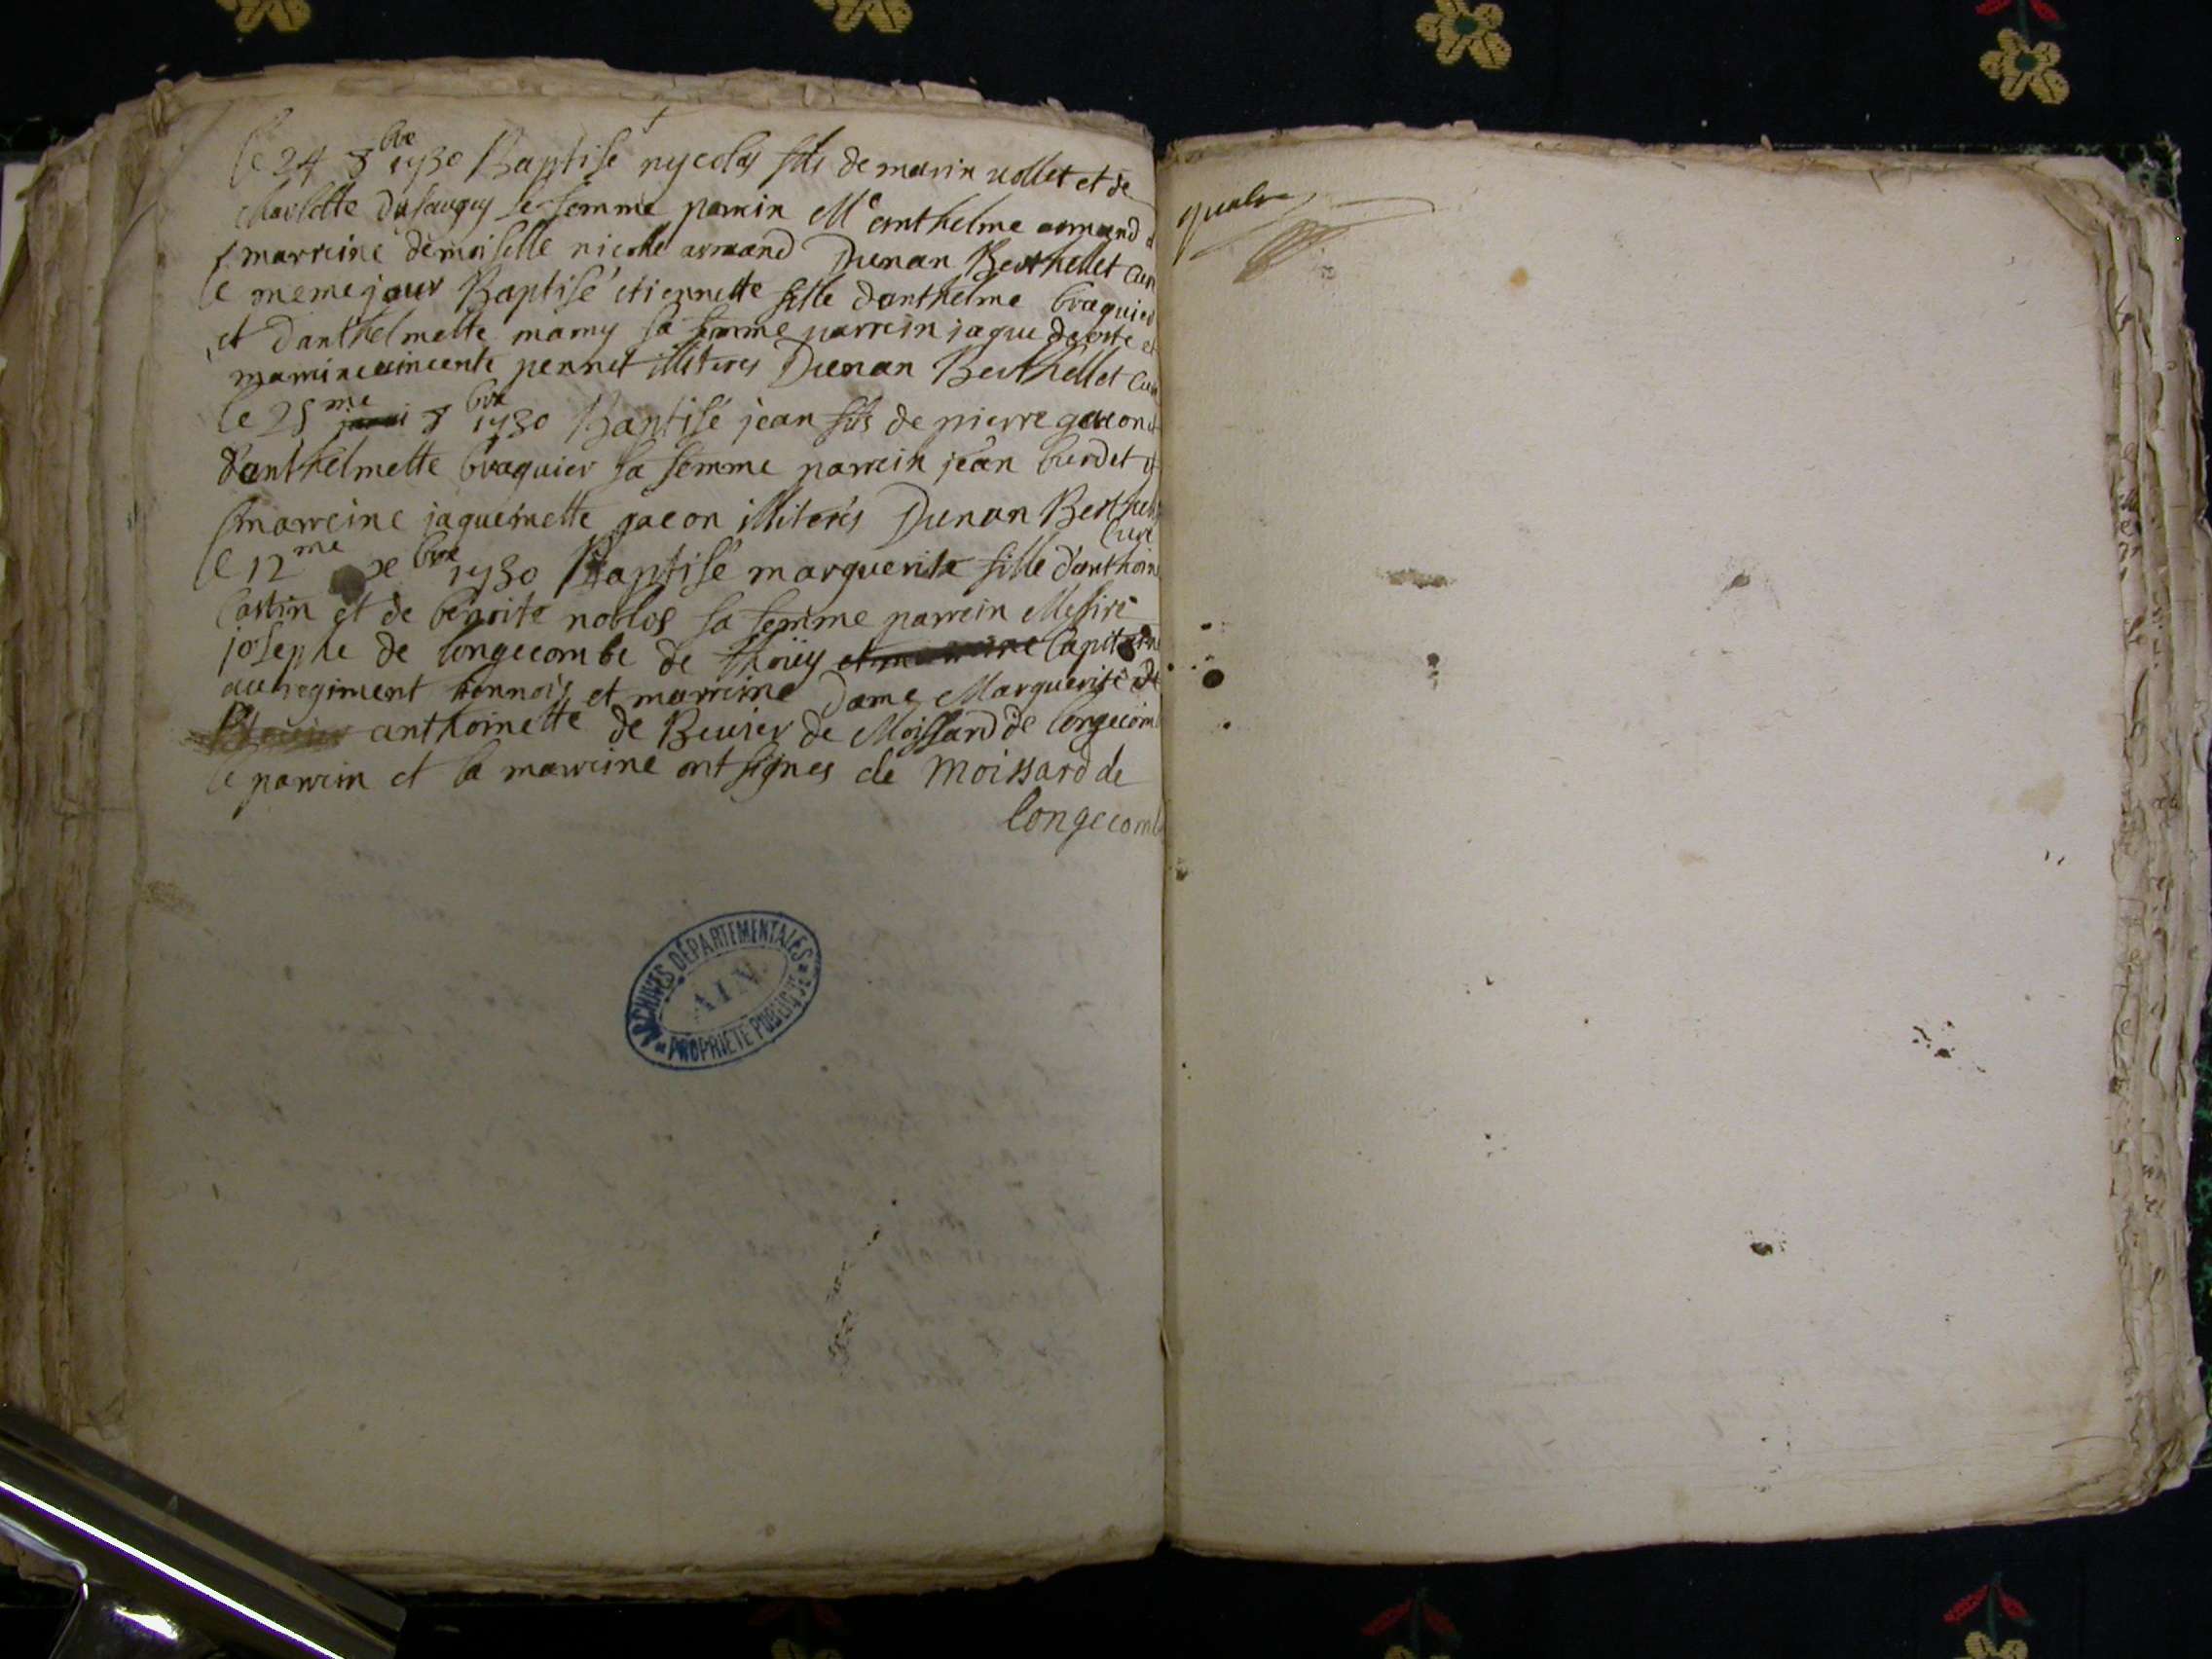 le 24 8bre 1730 Baptisé nycolas fils de marin uollet et de
charlotte dusaugey sa femme parrein Me anthelme armand et
marreine demoiselle nicolle armand Dunan Berthellet Curé
le meme jour Baptisé etiennette fille danthelme braquier
et danthelmette mamy sa femme parrein jaque et
marreine uincente pernet illiteres Dunan Berthellet Curé
le 25me 8bre 1730 Baptisé jean fils de pierre gacon et
d'anthelmette braquier sa femme parrein jean burdet et
marreine jaquemette gacon illiterés Dunan Berthel
Curé
le 12me xbre 1730 Baptisé marguerite fille d'anthoine
Castin et de benoite noblos sa femme parrein Messire
josephe de longecombe de thoüy et marreine Capitaine
au regiment et marreine Dame Marguerite de
anthoinette de Beuier de Moissard de longecom
le parrein et la marreine ont signes de moissard de
longecomb
ARCHIVES DÉPARTEMENTALES
AIN
PROPRIÉTÉ PUBLIQUE